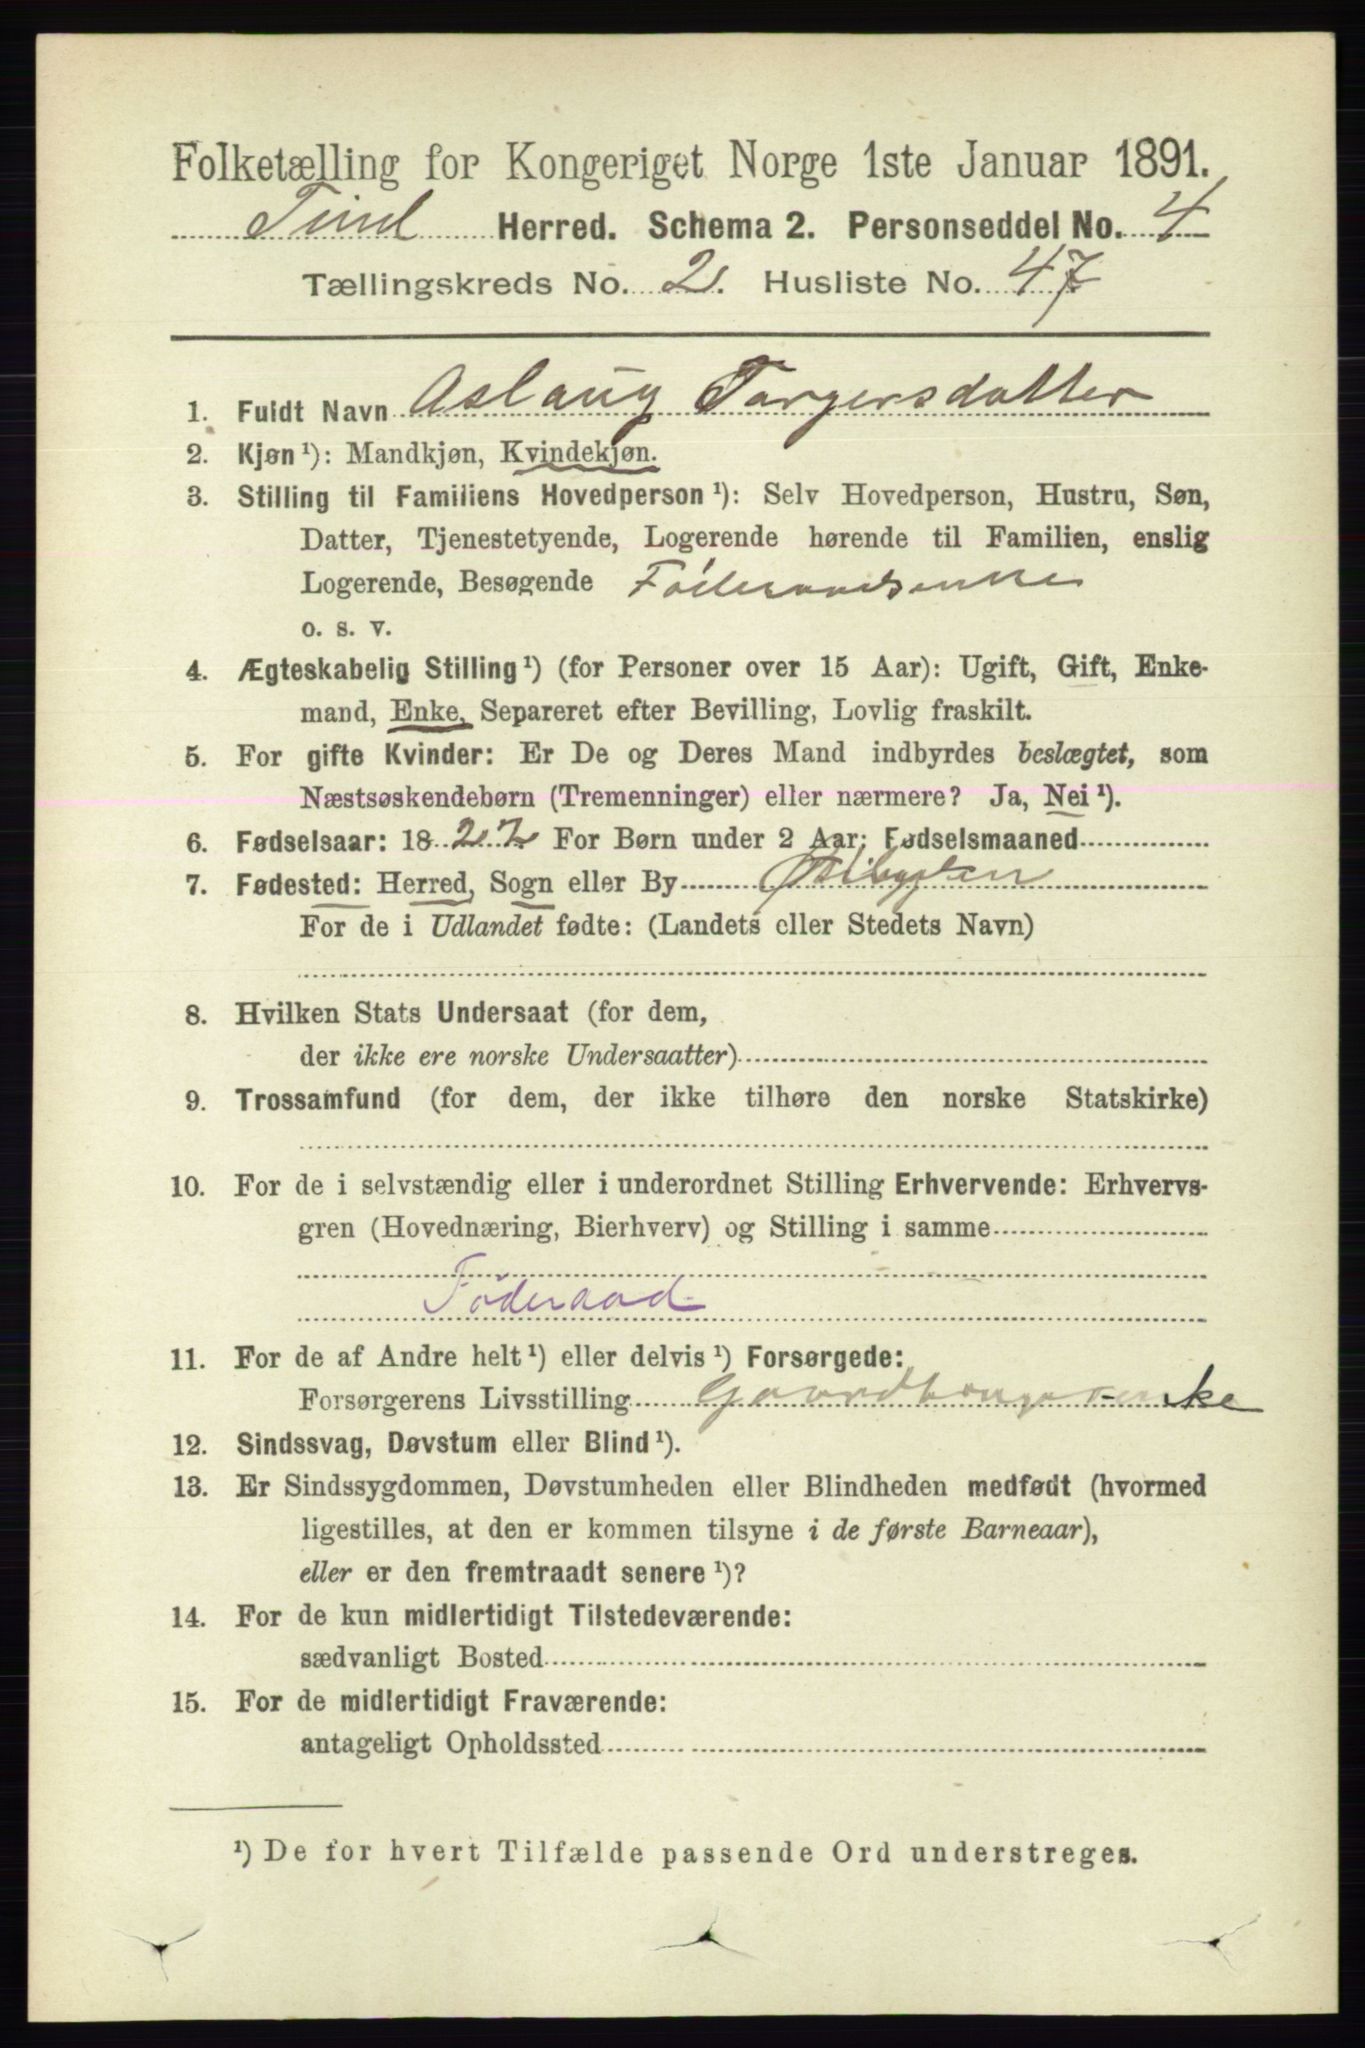 Folketælling for Kongeriget Norge 1ste Januar 1891.
Tind Herred. Schema 2. Personseddel No. 4
Tællingskreds No. 2. Husliste No. 47
1. Fuldt Navn Aslaug Torgersdatter
2. Kjøn ¹): Mandkjøn, Kvindekjøn.
3. Stilling til Familiens Hovedperson ¹): Selv Hovedperson, Hustru, Søn,
Datter, Tjenestetyende, Logerende hørende til Familien, enslig
Logerende, Besøgende Föderaadsenke
o. s. v.
4. Ægteskabelig Stilling ¹) (for Personer over 15 Aar): Ugift, Gift, Enke-
mand, Enke, Separeret efter Bevilling, Lovlig fraskilt.
5. For gifte Kvinder: Er De og Deres Mand indbyrdes beslægtet, som
Næstsøskendebørn (Tremenninger) eller nærmere? Ja, Nei ¹).
6. Fødselsaar: 1822 For Børn under 2 Aar: Fødselsmaaned
7. Fødested: Herred, Sogn eller By
For de i Udlandet fødte: (Landets eller Stedets Navn)
8. Hvilken Stats Undersaat (for dem,
der ikke ere norske Undersaatter)
9. Trossamfund (for dem, der ikke tilhøre den norske Statskirke)
10. For de i selvstændig eller i underordnet Stilling Erhvervende: Erhvervs-
gren (Hovednæring, Bierhverv) og Stilling i samme
Föderaad
11. For de af Andre helt ¹) eller delvis ¹) Forsørgede:
Forsørgerens Livsstilling
12. Sindssvag, Døvstum eller Blind ¹).
13. Er Sindssygdommen, Døvstumheden eller Blindheden medfødt (hvormed
ligestilles, at den er kommen tilsyne i de første Barneaar),
eller er den fremtraadt senere ¹)?
14. For de kun midlertidigt Tilstedeværende:
sædvanligt Bosted
15. For de midlertidigt Fraværende:
antageligt Opholdssted
¹) De for hvert Tilfælde passende Ord understreges.